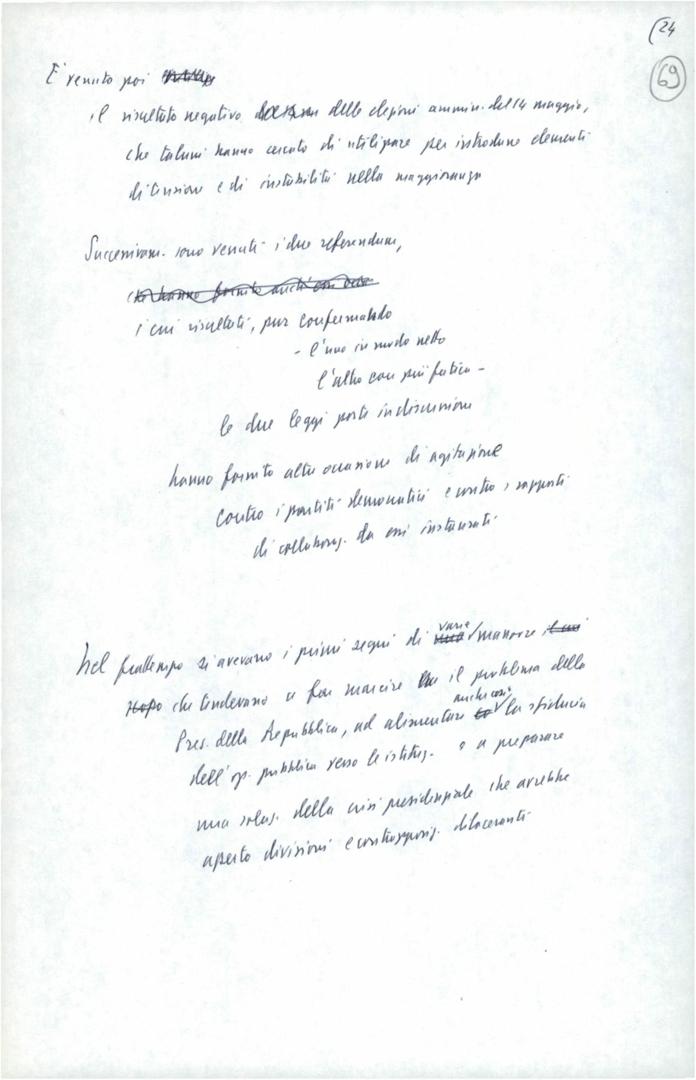 (24
69
È venuto poi
il risultato negativo delle elezioni ammin. del 14 maggio,
che taluni hanno cercato di utilizzare per introdurre elementi
di tensione e di instabilità nella maggioranza
Successivam. sono venuti i due referendum,
che hanno fornito anche
i cui risultati, pur confermando
- l'uno in modo netto
l'altro con più fatica -
le due leggi poste in discussione
hanno fornito altra occasione di agitazione
contro i partiti democratici e contro i rapporti
di collaboraz. da essi instaurati
Nel frattempo si avevano i primi segni di varie manovre
che tendevano a far marcire il problema della
Pres. della Repubblica, ad alimentare anche così la sfiducia
dell'op. pubblica verso le istituz. o a preparare
una soluz. della crisi presidenziale che avrebbe
aperto divisioni e contrapposiz. dilaceranti